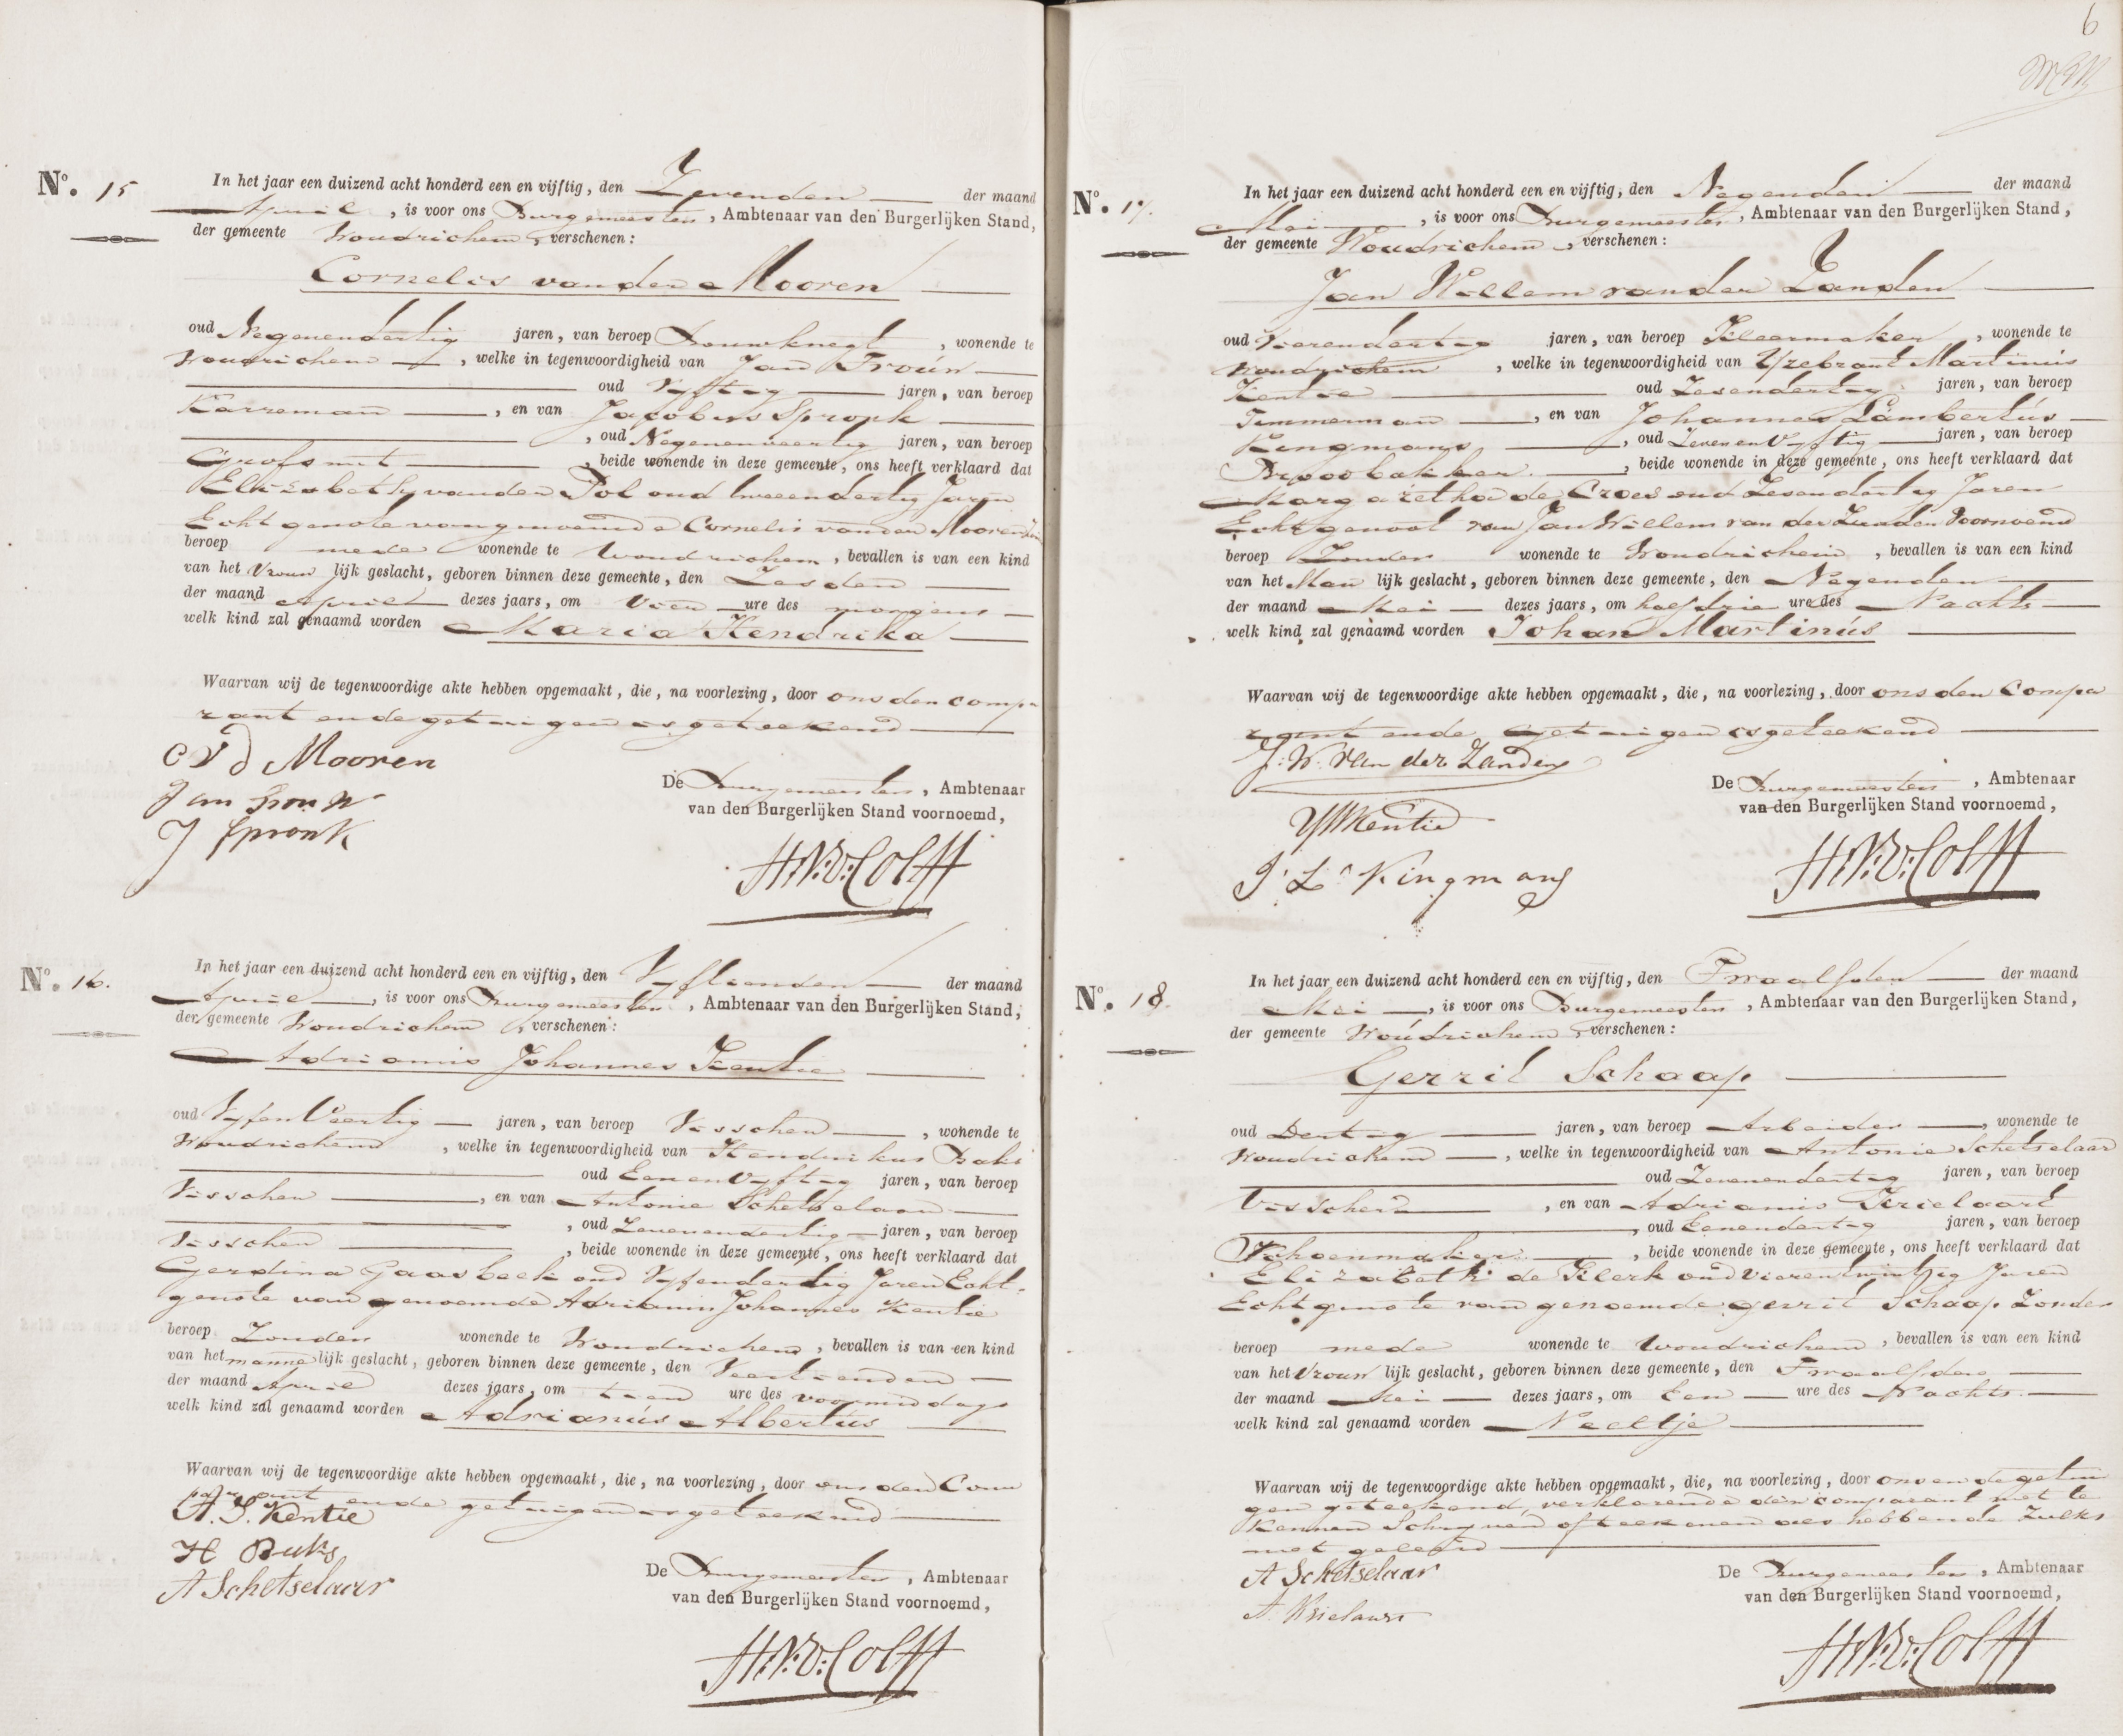 Nº. 15
In het jaar een duizend acht honderd een en vijftig, den Zevenden der maand
April, is voor ons Burgemeester, Ambtenaar van den Burgerlijken Stand,
der gemeente Woudrichem, verschenen:
Cornelis van der Mooren
oud Negenendertig jaren, van beroep Bouwknegt, wonende te
Woudrichem, welke in tegenwoordigheid van Jan Trouw
oud Vyftig jaren, van beroep
Karreman, en van Jacobus Spronk
, oud Negenenveertig jaren, van beroep
Grofsmit, beide wonende in deze gemeente, ons heeft verklaard dat
Elizabeth van den Pol oud tweeendertig Jaren
Echtgenote van genoemde Cornelis van der Mooren
beroep mede wonende te Woudrichem, bevallen is van een kind
van het Vrouwlijk geslacht, geboren binnen deze gemeente, den Zesden
der maand April dezes jaars, om Vier ure des morgens
welk kind zal genaamd worden Maria Hendrika
Waarvan wij de tegenwoordige akte hebben opgemaakt, die, na voorlezing, door ons den compa
rant en de getuigen is geteekend
C v d Mooren
Jan Trouw
J Spronk
De Burgemeester, Ambtenaar
van den Burgerlijken Stand voornoemd,
H.N.V:Colff
Nº. 16.
In het jaar een duizend acht honderd een en vijftig, den Vyftienden der maand
April, is voor ons Burgemeester, Ambtenaar van den Burgerlijken Stand,
der gemeente Woudrichem, verschenen:
Adrianus Johannes Kentie
oud Vyfen Veertig jaren, van beroep Visscher, wonende te
Woudrichem, welke in tegenwoordigheid van Hendrikus Buks
oud Eenen Vyftig jaren, van beroep
Visscher, en van Antonie Schetselaar
, oud Zevenendertig jaren, van beroep
Visscher, beide wonende in deze gemeente, ons heeft verklaard dat
Gerdina Gaasbeek oud Vyfendertig Jaren Echt-
genote van genoemde Adrianus Johannes Kentie
beroep Zonder wonende te Woudrichem, bevallen is van een kind
van het mannelijk geslacht, geboren binnen deze gemeente, den Veertienden
der maand April dezes jaars, om tien ure des voormiddags
welk kind zal genaamd worden Adrianus Albertus
Waarvan wij de tegenwoordige akte hebben opgemaakt, die, na voorlezing, door ons den Com
parant en de getuigen is geteekend
A. J. Kentie
H Buks
A Schetselaar
De Burgemeester, Ambtenaar
van den Burgerlijken Stand voornoemd,
H.N.V:Colff
6
Nº. 17.
In het jaar een duizend acht honderd een en vijftig, den Negenden der maand
Mei, is voor ons Burgemeester, Ambtenaar van den Burgerlijken Stand,
der gemeente Woudrichem, verschenen:
Jan Willem van der Zanden
oud Vierendertig jaren, van beroep Kleermaker, wonende te
Woudrichem, welke in tegenwoordigheid van Yzebrant Martinus
Kentie oud Zesendertig jaren, van beroep
Timmerman, en van Johannes Lambertus
Kingmans, oud Zevenen Vyftig jaren, van beroep
Broodbakker, beide wonende in deze gemeente, ons heeft verklaard dat
Margaretha de Croes oud Zesendertig Jaren
Echtgenoot van Jan Willem van der Zanden Voornoemd
beroep Zonder wonende te Woudrichem, bevallen is van een kind
van het Manlijk geslacht, geboren binnen deze gemeente, den Negenden
der maand Mei dezes jaars, om half drie ure des Nachts
welk kind zal genaamd worden Johan Martinus
Waarvan wij de tegenwoordige akte hebben opgemaakt, die, na voorlezing, door ons den Compa
rant en de getuigen is geteekend
J. W. van der Zanden
Y M Kentie
J. L. Kingmans
De Burgemeester, Ambtenaar
van den Burgerlijken Stand voornoemd,
H.N.V:Colff
Nº. 18.
In het jaar een duizend acht honderd een en vijftig, den Twaalfden der maand
Mei, is voor ons Burgemeester, Ambtenaar van den Burgerlijken Stand,
der gemeente Woudrichem, verschenen:
Gerrit Schaap
oud Dertig jaren, van beroep Arbeider, wonende te
Woudrichem, welke in tegenwoordigheid van Antonie Schetselaar
oud Zevenendertig jaren, van beroep
Visscher, en van Adrianus Krielaart
, oud Eenendertig jaren, van beroep
Schoenmaker, beide wonende in deze gemeente, ons heeft verklaard dat
Elizabeth de Klerk oud vierentwintig Jaren
Echtgenote van genoemde gerrit Schaap Zonder
beroep mede wonende te Woudrichem, bevallen is van een kind
van het Vrouwlijk geslacht, geboren binnen deze gemeente, den Twaalfden
der maand Mei dezes jaars, om Een ure des Nachts
welk kind zal genaamd worden Neeltje
Waarvan wij de tegenwoordige akte hebben opgemaakt, die, na voorlezing, door ons en de getui
gen geteekend, verklarende den comparant niet te
kennen Schryven of teekenen als hebbende Zulks
niet geleerd
A Schetselaar
A. Krielaart
De Burgemeester, Ambtenaar
van den Burgerlijken Stand voornoemd,
H.N.V:Colff